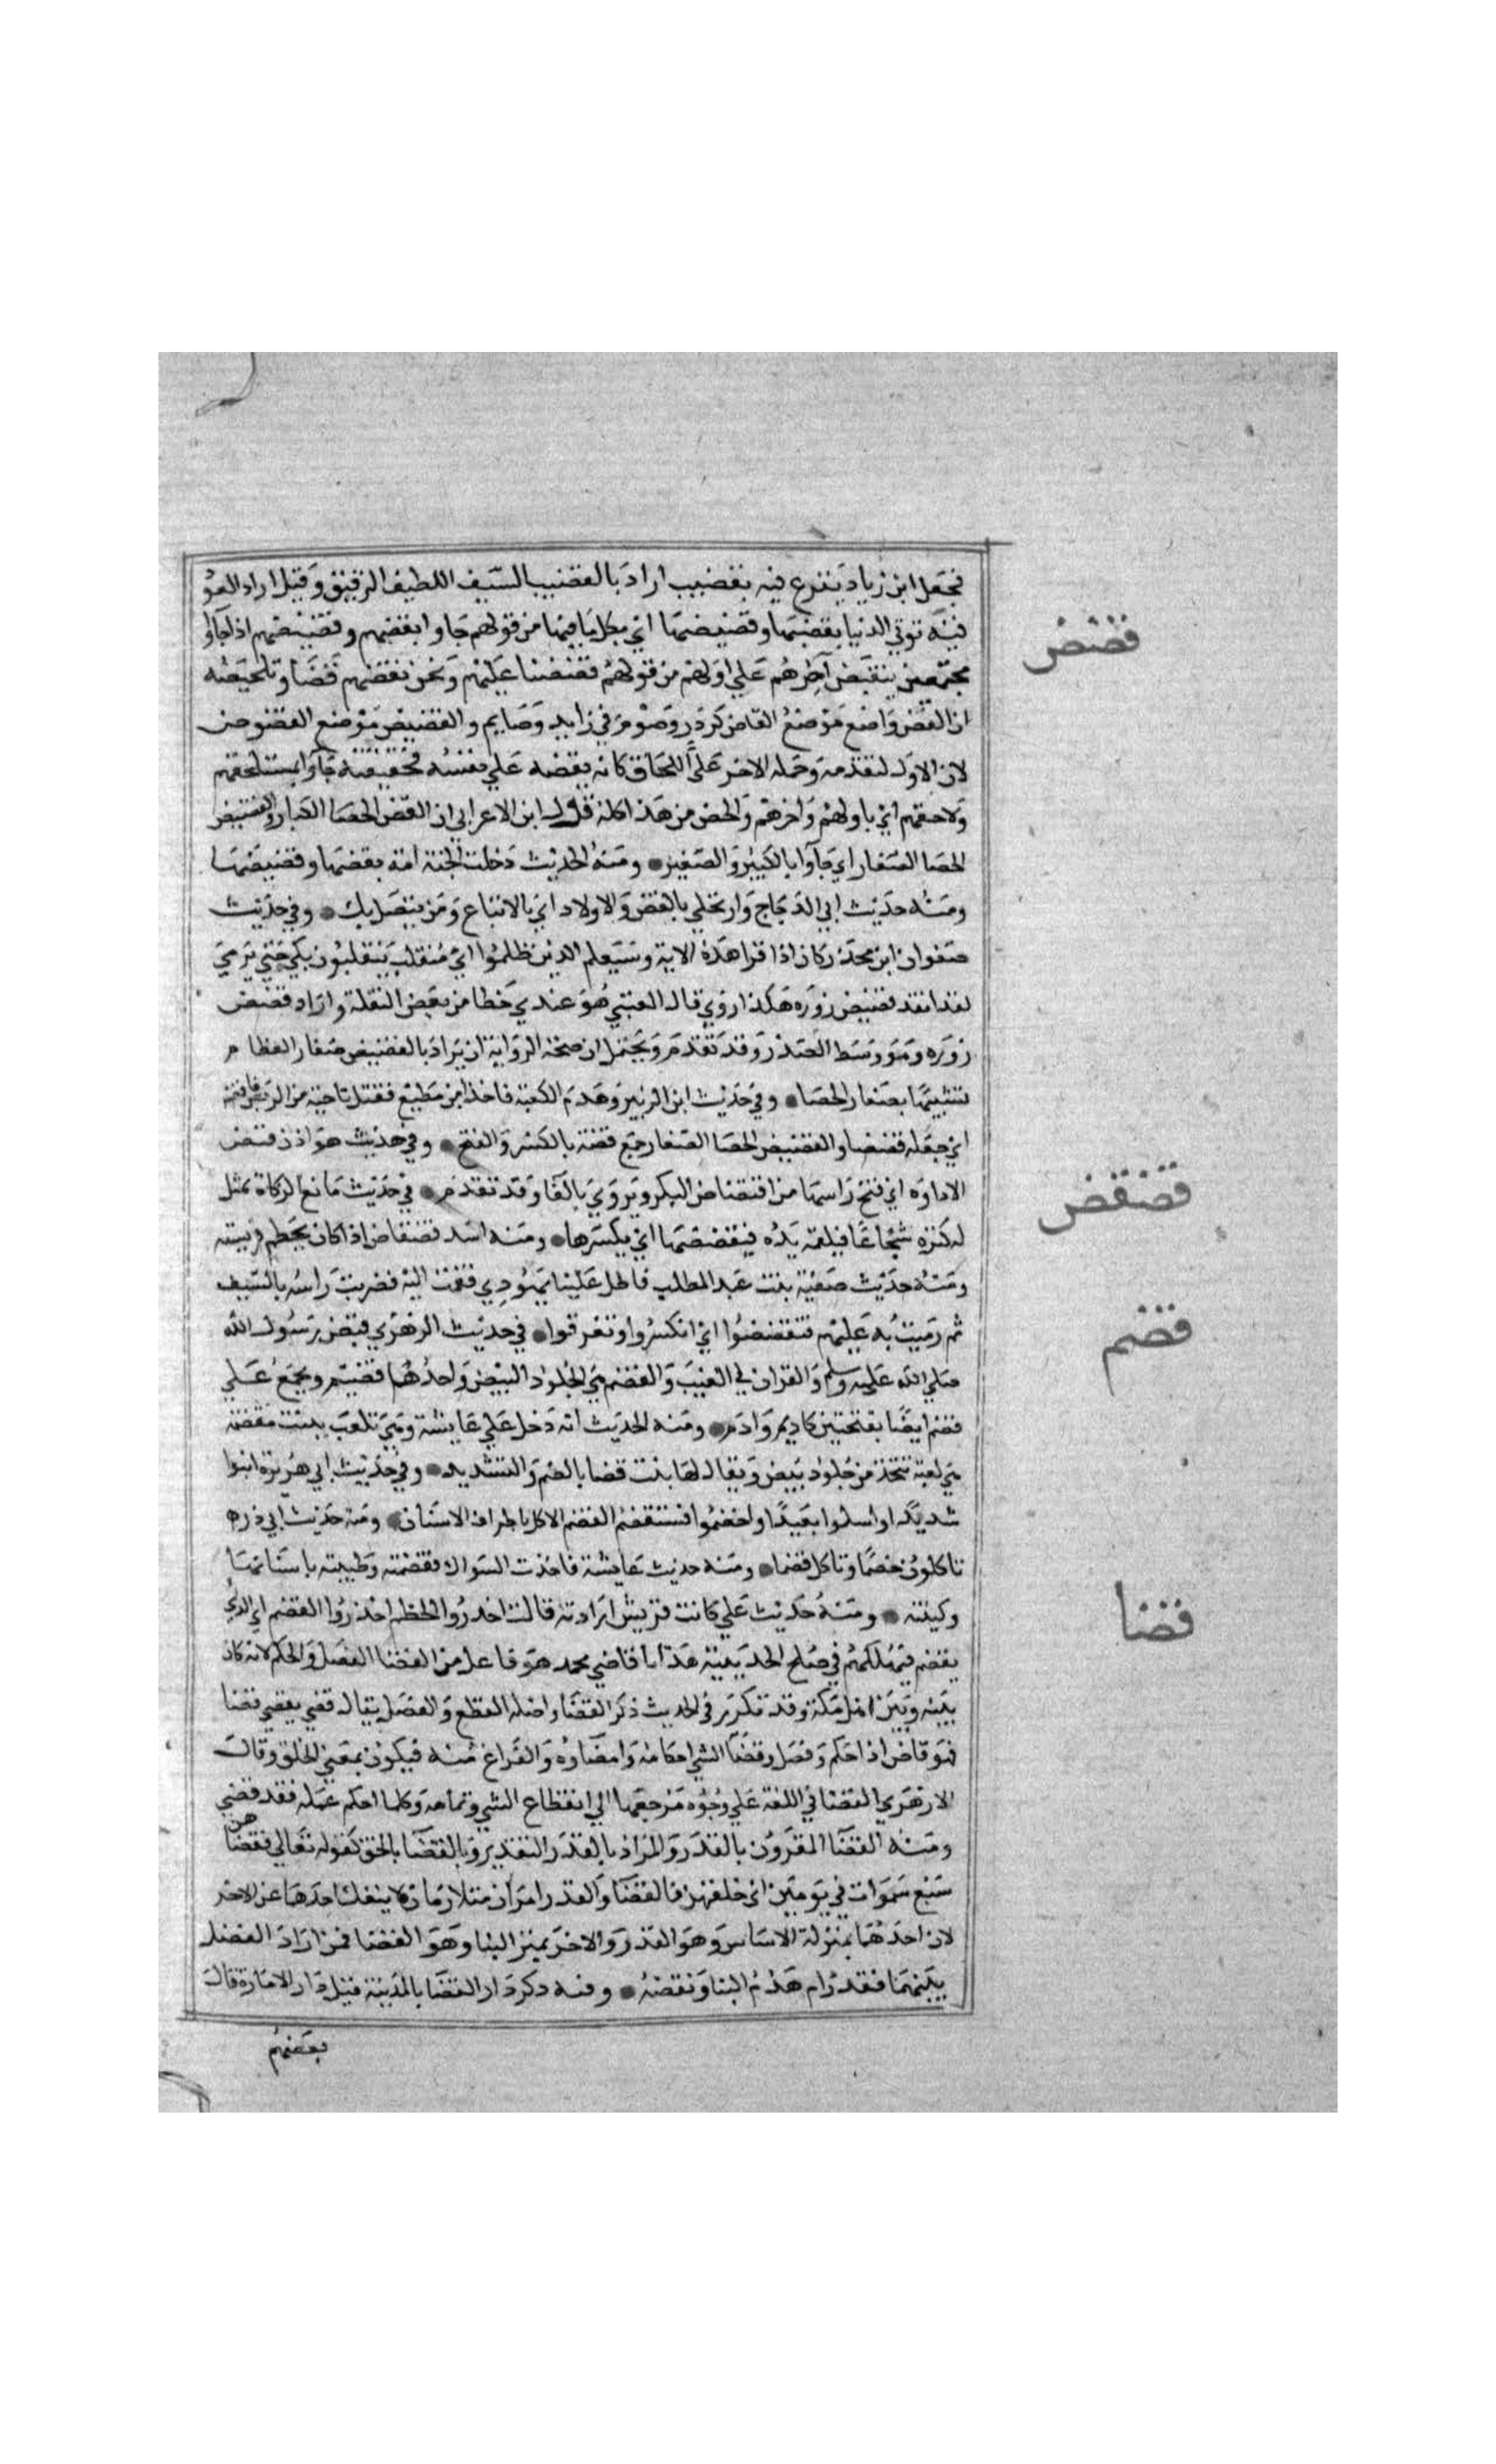 فجعل ابن زياد يقرع فيه بقضيب اراد بالقضيب السيف اللطيف الرقيق وقيل اراد العود
قضض
فيه توتي الدنيا بقضها وقضيضها اي بكل ما فيها من قولهم جاوا بقضهم وقضيضهم اذا جاوا
مجتمعين ينقض اخرهم علي اولهم من قولهم قضضنا عليهم ونحن نقضهم قضا وتلخيصه
ان القض واضع موضع القاض كزور وصوم في زاير وصايم والقضيض موضع المقضوض
لان الاول لتقدمه وحمله الاخر علي اللحاق كانه يقضه علي نفسه فحقيقته جاوا بمستلحقهم
ولاحقهم اي باولهم واخرهم والخص من هذا كله قول ابن الاعرابي ان القض الحصا الكبار والقضيض
الحصا الصغار اي جاوا بالكبير والصغير ومنه الحديث دخلت الجنة امة بقضها وقضيضها
ومنه حديث ابي الدحداح وارتحلي بالقض والاولاد اي بالاتباع ومن يتصل بك وفي حديث
صفوان ابن محرز كان اذا قرا هذه الاية وسيعلم الذين ظلموا اي منقلب ينقلبون بكي حتي يرمي
لقد انقد قضيض زوره هكذا روي قال القتبي هو عندي خطا من بعض النقلة واراد قصص
زوره وهو وسط الصدر وقد تقدم ويحتمل ان صحة الرواية ان يراد بالقضيض صغار العظام
تشبيها بصغار الحصا وفي حديث ابن الزبير وهدم الكعبة فاخذ ابن مطيع فعتل ناحية من الربض فاقضه
اي جعله قضضا والقضيض الحصا الصغار جمع قضة بالكسر والفتح وفي حديث هوازن فاقتض
الاداوه اي فتح راسها من اقتضاض البكر ويروي بالفا وقد تقدم في حديث مانع الزكاة يمثل
قضقض
له كنزه شجاعا فيلقمه يده فيقضقضها اي يكسرها ومنه اسد قضقاض اذا كان يحطم فريسته
ومنه حديث صفية بنت عبد المطلب فاطل علينا يهودي فقمت اليه فضربت راسه بالسيف
ثم رميت به عليهم فتقضقضوا اي انكسروا وتفرقوا في حديث الزهري قبض رسول الله
قضم
صلي الله عليه وسلم والقران في العسب والقضم هي الجلود البيض واحدها قضيم ويجمع علي
قضم ايضا بفتحتين كاديم وادم ومنه الحديث انه دخل علي عايشة وهي تلعب ببنت مقضمة
هي لعبة تتخذ من جلود بيض ويقال لها بنت قضا بالضم والتشديد وفي حديث ابي هريرة ابنوا
شديدا واملوا بعيدا واخضموا فسنقضم القضم الاكل باطراف الاسنان ومنه حديث ابي ذر
تاكلون خضما وناكل قضما ومنه حديث عايشة فاخذت السواك فقضمته وطيبته باسنانها
ولينته ومنه حديث علي كانت قريش اذا راته قالت احذروا الحطم احذروا القضم اي الذي
قضا
يقضم فيهلكهم في صلح الحديبية هذا ما قاضي محمد هو فاعل من القضا الفصل والحكم لانه كان
بينه وبين اهل مكة وقد تكرر في الحديث ذكر القضا واصله القطع والفصل يقال قضي يقضي قضا
فهو قاض اذا حكم وفصل وقضا الشي احكامه وامضاوه والفراغ منه فيكون بمعني الخلق وقال
الازهري القضا في اللغة علي وجوه مرجعها الي انقطاع الشي وتمامه وكلما احكم عمله فقد قضي
ومنه القضا المقرون بالقدر والمراد بالقدر التقدير وبالقضا الخلق كقوله تعالي فقضاهن
سبع سموات في يومين اي خلقهن فالقضا والقدر امران متلازمان لا ينفك احدهما عن الاخر
لان احدهما بمنزلة الاساس وهو القدر والاخر بمنز البنا وهو القضا فمن اراد الفصل
بينهما فقد رام هدم البنا ونقضه وفيه ذكر دار القضا بالمدينة قيل دار الامارة قال
بعضهم